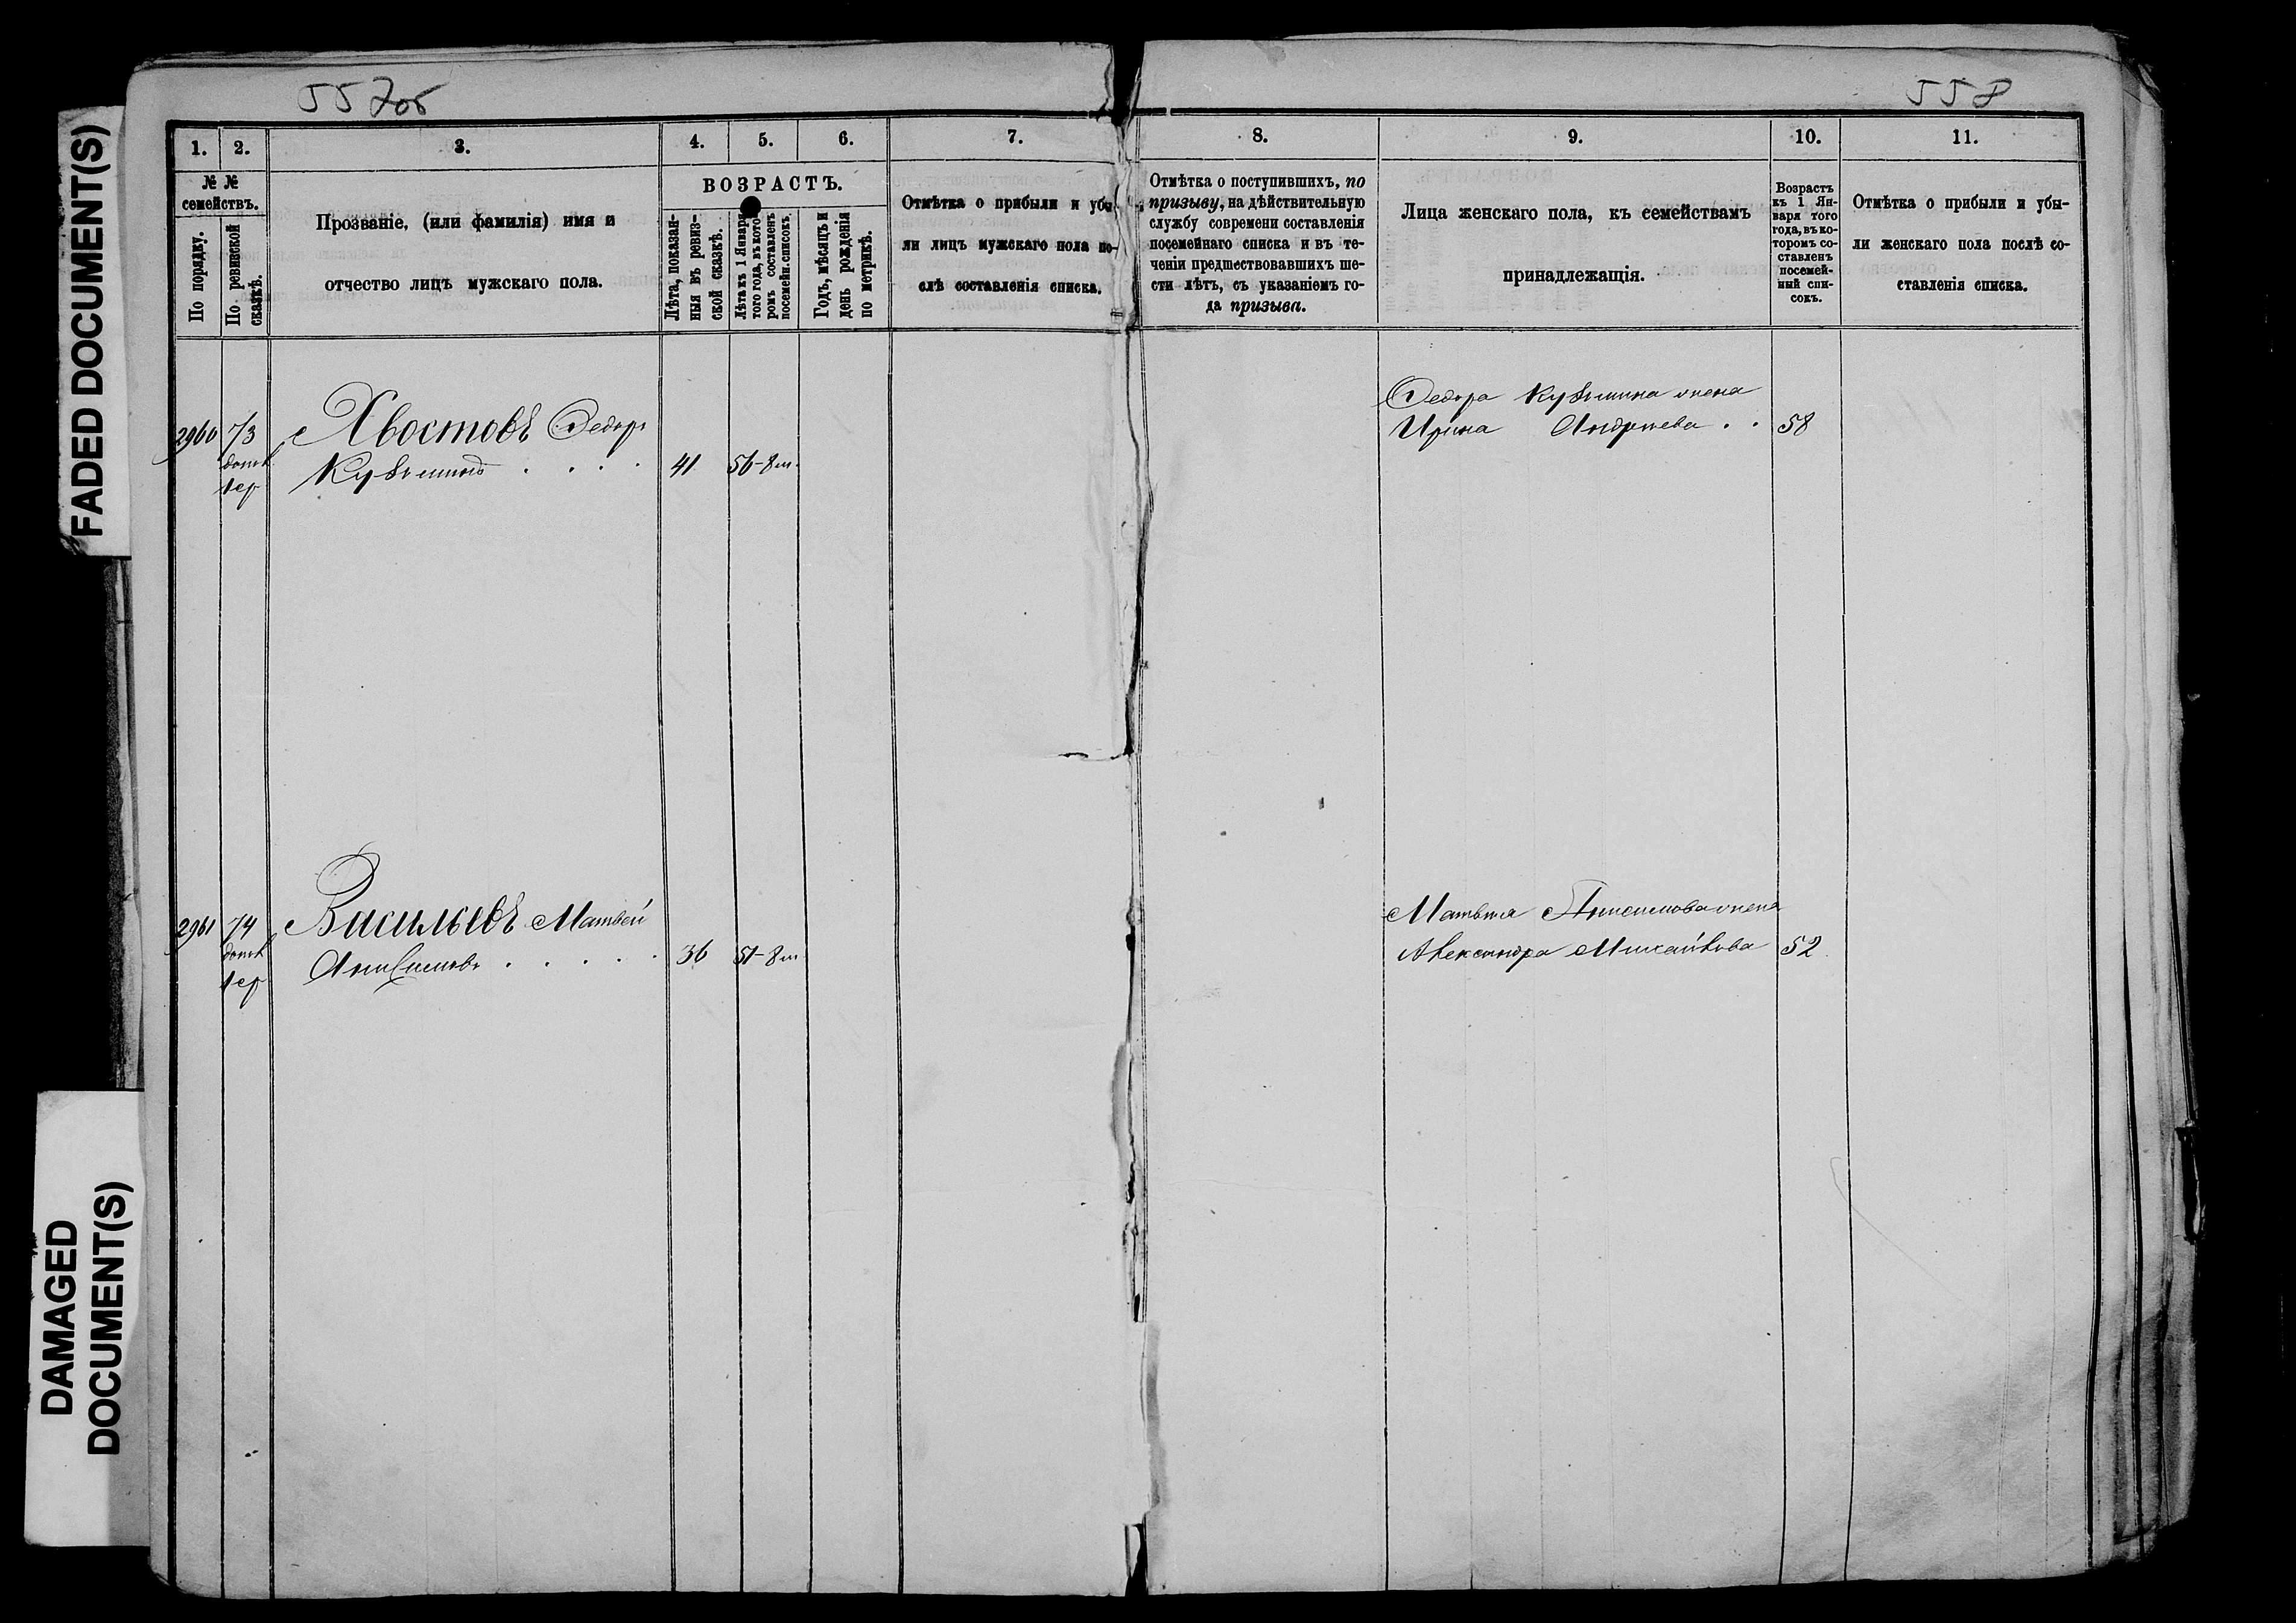 FADED DOCUMENT(S)
DAMAGED
DOCUMENT(S)
557об
558
1. 2. 3. 4. 5. 6. 7. 8. 9. 10. 11.
№ №
семействъ.
По порядку.
По ревизской
сказкѣ.
Прозваніе, (или фамилія) имя и
отчество лицъ мужскаго пола.
ВОЗРАСТЪ.
Лѣта, показан-
ныя въ ревиз-
ской сказкѣ.
Лѣта къ 1 Января
того года, въ кото-
ромъ составленъ
посемейн. списокъ.
Годъ, мѣсяцъ и
день рожденія
по метрикѣ.
Отмѣтка о прибыли и убы-
ли лицъ мужскаго пола по-
слѣ составленія списка.
Отмѣтка о поступившихъ, по
призыву, на дѣйствительную
службу современи составленія
посемейнаго списка и въ те-
ченіи предшествовавшихъ ше-
сти лѣтъ, съ указаніемъ го-
да призыва.
Лица женскаго пола, къ семействамъ
принадлежащія.
Возрастъ
къ 1 Ян-
варя того
года, въ ко-
торомъ со-
ставленъ
посемей-
ный спи-
сокъ.
Отмѣтка о прибыли и убы-
ли женскаго пола послѣ со-
ставленія списка.
2960 73 Хвостовъ Федоръ
Кузьминъ . . . . 41 56-8 м.
Федора Кузьмина жена
Ирина Андреева . . 58
2961 74 Васильевъ Матвей
Анисимовъ . . . . . 36 51-8 м
Матвея Анисимова жена
Александра Михайлова 52